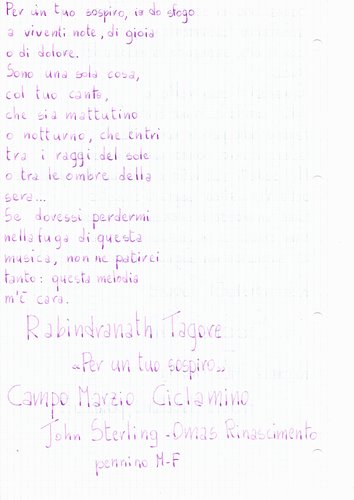 Per un tuo sospiro, io do sfogo
a viventi note, di gioia
o di dolore.
Sono una sola cosa,
col tuo canto,
che sia mattutino
o notturno, che entri
tra i raggi del sole
o tra le ombre della
sera...
Se dovessi perdermi
nella fuga di questa
musica, non ne patirei
tanto: questa melodia
m'è cara.
Rabindranath Tagore
"Per un tuo sospiro..."
Campo Marzio Ciclamino
John Sterling - Omas Rinascimento
pennino M-F